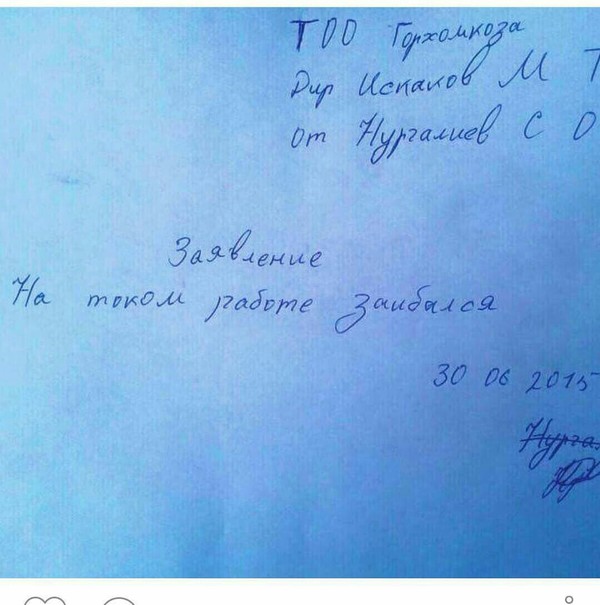 ТОО Горхомкоза
Дир Искаков М Т
от Нургалиев С О
Заявление
На током работе заибался
30 06 2015